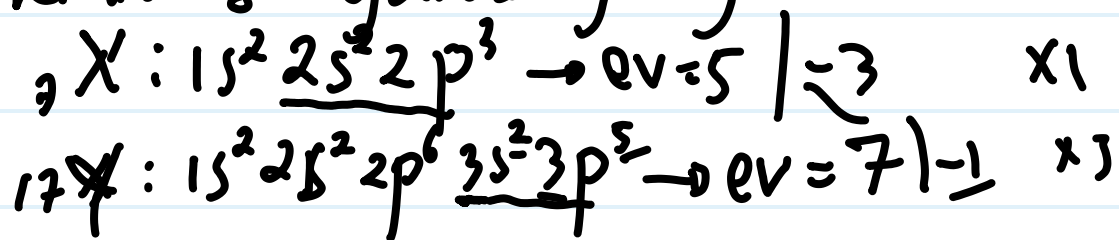 ₇X : 1s² 2s² 2p³ → ev = 5 | -3 x1
₁₇Y : 1s² 2s² 2p⁶ 3s² 3p⁵ → ev = 7 | -1 x3